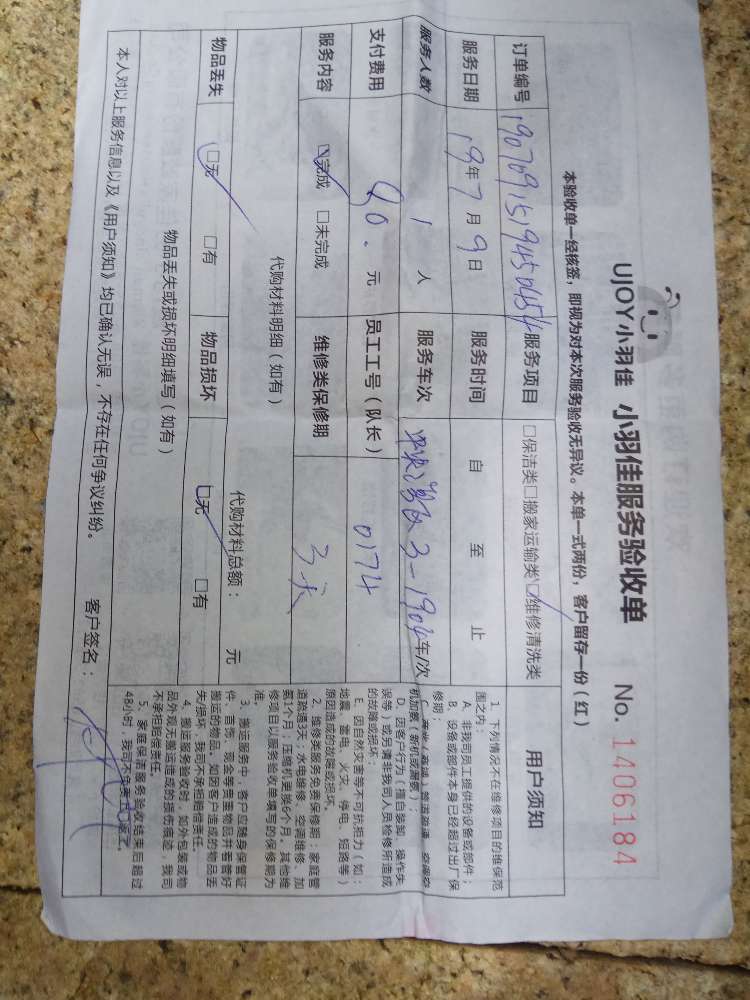 UJOY小羽佳 小羽佳服务验收单 No. 1406184
本验收单一经核签，即视为对本次服务验收无异议。本单一式两份，客户留存一份（红）
订单编号 服务项目 □保洁类□搬家运输类☑维修清洗类 用户须知
服务日期 19年7月9日 服务时间 自 至 止
服务人数 1人 服务车次 3-1904车/次
支付费用 90.元 员工工号（队长） 0174
服务内容 ☑完成 □未完成 维修类保修期 3天
代购材料明细（如有） 代购材料总额： 元
物品丢失 ☑无 □有 物品损坏 ☑无 □有
物品丢失或损坏明细填写（如有）
本人对以上服务信息以及《用户须知》均已确认无误，不存在任何争议纠纷。 客户签名：
1、下列情况不在维修项目的维保范
围之内：
A、非我司员工提供的设备或部件；
B、设备或部件本身已经超过出厂保
修期；
机加氨（新机或漏氨）；
D、因客户行为（擅自装卸、操作失
误等）或另请非我司人员检修所造成
的故障或损坏；
E、因自然灾害等不可抗拒力（如：
地震、雷电、火灾、停电、短路等）
原因造成的故障或损坏。
2、维修类服务免费保修期：家庭管
道疏通3天；水电维修、空调维修、加
氨1个月；压缩机更换6个月。其他维
修项目以服务验收单填写的保修期为
准。
3、搬运服务中，客户应随身保管证
件、首饰、现金等贵重物品并看管好
搬运的物品，如因客户造成的物品丢
失/损坏，我司不承担赔偿责任。
4、搬运服务验收时，如外包装或物
品外观无搬运造成的损伤痕迹，我司
不承担赔偿责任。
5、家庭保洁服务验收结束后超过
48小时，我司不负责上门返工。